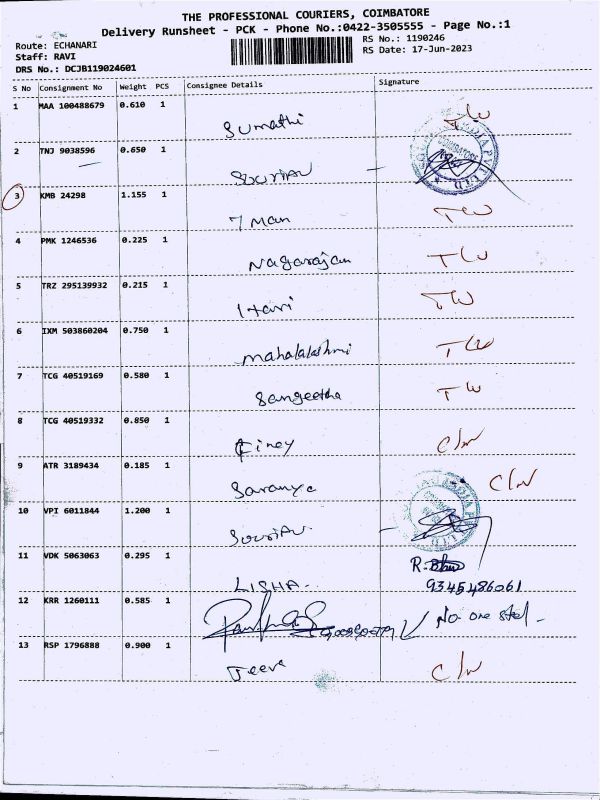 THE PROFESSIONAL COURIERS, COIMBATORE
Delivery Runsheet - PCK - Phone No.:0422-3505555 - Page No.:1
Route: ECHANARI
RS No.: 1190246
Staff: RAVI
RS Date: 17-Jun-2023
DRS No.: DCJB119024601
S No Consignment No Weight PCS Consignee Details Signature
1 MAA 100488679 0.610 1 Sumathi TW
2 TNJ 9038596 0.650 1
3 KMB 24298 1.155 1 7 Man TW
4 PMK 1246536 0.225 1 Nagarajan TW
5 TRZ 295139932 0.215 1 Hari TW
6 IXM 503860204 0.750 1 Mahalakshmi TW
7 TCG 40519169 0.580 1 Sangeetha TW
8 TCG 40519332 0.850 1 C/W
9 ATR 3189434 0.185 1 Saranya C/W
10 VPI 6011844 1.200 1
11 VDK 5063063 0.295 1 LISHA R.
9345486061
12 KRR 1260111 0.585 1 No one
13 RSP 1796888 0.900 1 Jeeva C/W